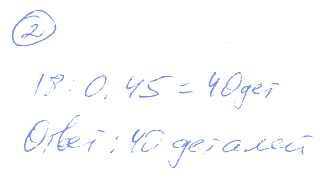 2
18:0,45=40дет
Ответ:40 деталей